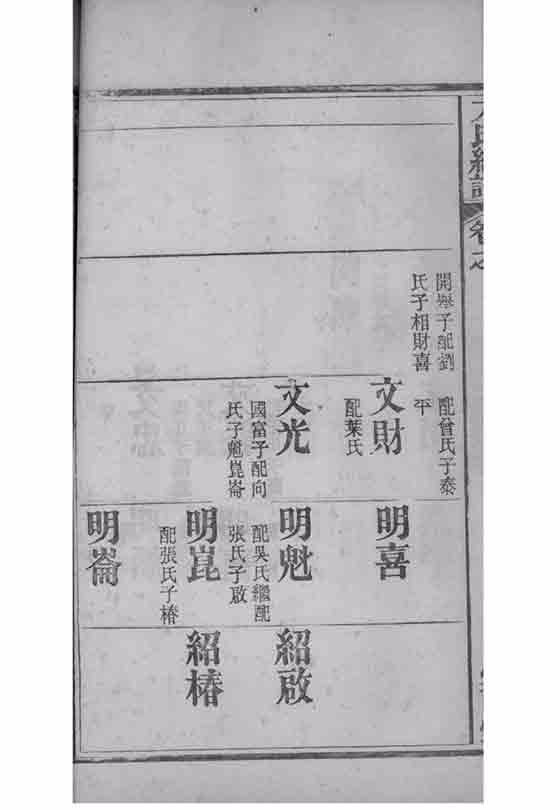 氏續譜
卷之
開舉子配劉
氏子相財喜
配曾氏子泰
平
文財
配葉氏
文光
國富子配向
氏子魁崑崙
明喜
明魁
配吳氏繼配
張氏子啟
明崑
配張氏子椿
明崙
紹啟
紹椿